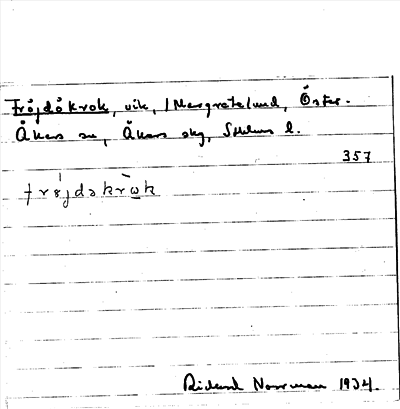 Fröjdåkrok, vik, /Margretelund, Öster-
Åkers sn, Åkers skg, Sthlms l.
357
frøjdəkrωk
Rickard Norrman 1934.